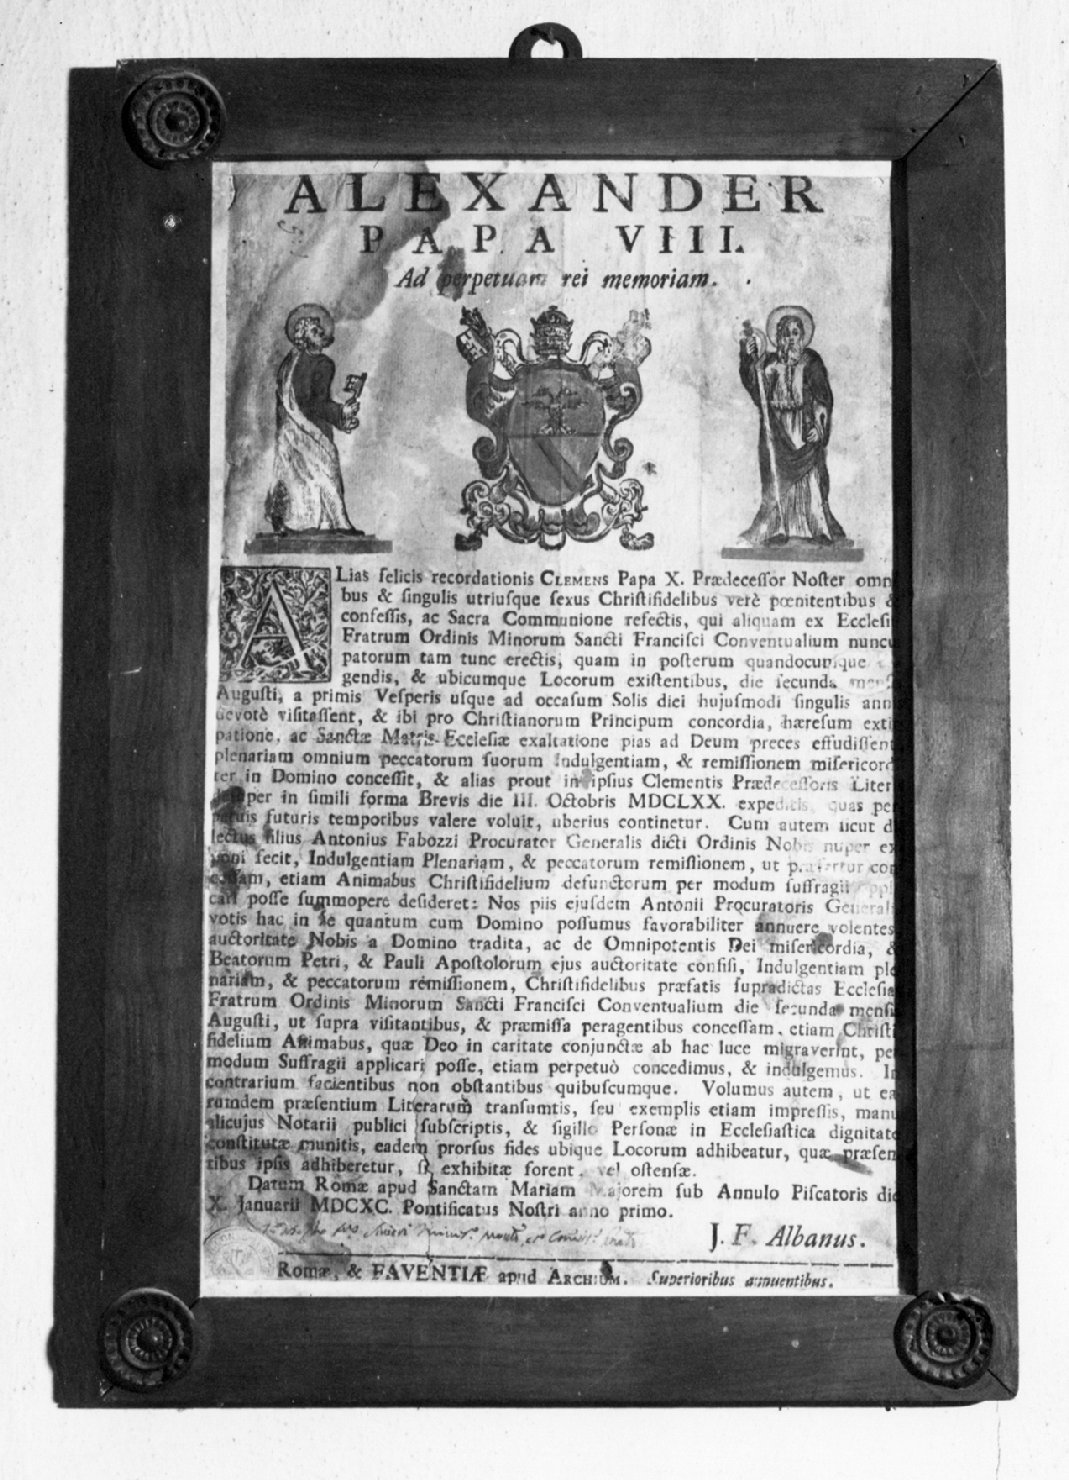 ALEXANDER
PAPA VIII.
Ad perpetuam rei memoriam.
ALias felicis recordationis CLEMENS Papa X. Prædecessor Noster omn
bus & singulis utriusque sexus Christifidelibus verè pœnitentibus &
confessis, ac Sacra Communione refectis, qui aliquam ex Ecclesi
Fratrum Ordinis Minorum Sancti Francisci Conventualium nuncu
patorum tam tunc erectis, quam in posterum quandocunque
gendis, & ubicumque Locorum existentibus, die secunda mens
Augusti, a primis Vesperis usque ad occasum Solis diei hujusmodi singulis annis
devotè visitassent, & ibi pro Christianorum Principum concordia, hæresum exti
patione, ac Sanctæ Matris Ecclesiæ exaltatione pias ad Deum preces effudissent
plenariam omnium peccatorum suorum Indulgentiam, & remissionem misericord
ter in Domino concessit, & alias prout in ipsius Clementis Prædecessoris Liter
semper in simili forma Brevis die III. Octobris MDCLXX. expeditis, quas per
petuis futuris temporibus valere voluit, uberius continetur. Cum autem sicut d
lectus filius Antonius Fabozzi Procurator Generalis dicti Ordinis Nobis nuper ex
poni fecit, Indulgentiam Plenariam, & peccatorum remissionem, ut præfertur con
cessam, etiam Animabus Christifidelium defunctorum per modum suffragii appli
cari posse summopere desideret: Nos piis ejusdem Antonii Procuratoris Generali
votis hac in se quantum cum Domino possumus favorabiliter annuere volentes
auctoritate Nobis a Domino tradita, ac de Omnipotentis Dei misericordia, &
Beatorum Petri, & Pauli Apostolorum ejus auctoritate confisi, Indulgentiam ple
nariam, & peccatorum remissionem, Christifidelibus præfatis supradictas Ecclesia
Fratrum Ordinis Minorum Sancti Francisci Conventualium die secunda mensi
Augusti, ut supra visitantibus, & præmissa peragentibus concessam, etiam Christi
fidelium Animabus, quæ Deo in caritate conjunctæ ab hac luce migraverint, per
modum Suffragii applicari posse, etiam perpetuò concedimus, & indulgemus. In
contrarium facientibus non obstantibus quibuscumque. Volumus autem, ut ea
rumdem præsentium Literarum transumtis, seu exemplis etiam impressis, manu
alicujus Notarii publici subscriptis, & sigillo Personæ in Ecclesiastica dignitate
constitutæ munitis, eadem prorsus fides ubique Locorum adhibeatur, quæ præsen
tibus ipsis adhiberetur, si exhibitæ forent, vel ostensæ.
Datum Romæ apud Sanctam Mariam Majorem sub Annulo Piscatoris die
X. Januarii MDCXC. Pontificatus Nostri anno primo.
J. F. Albanus.
Romæ, & FAVENTIÆ apud ARCHIUM. Superioribus annuentibus.